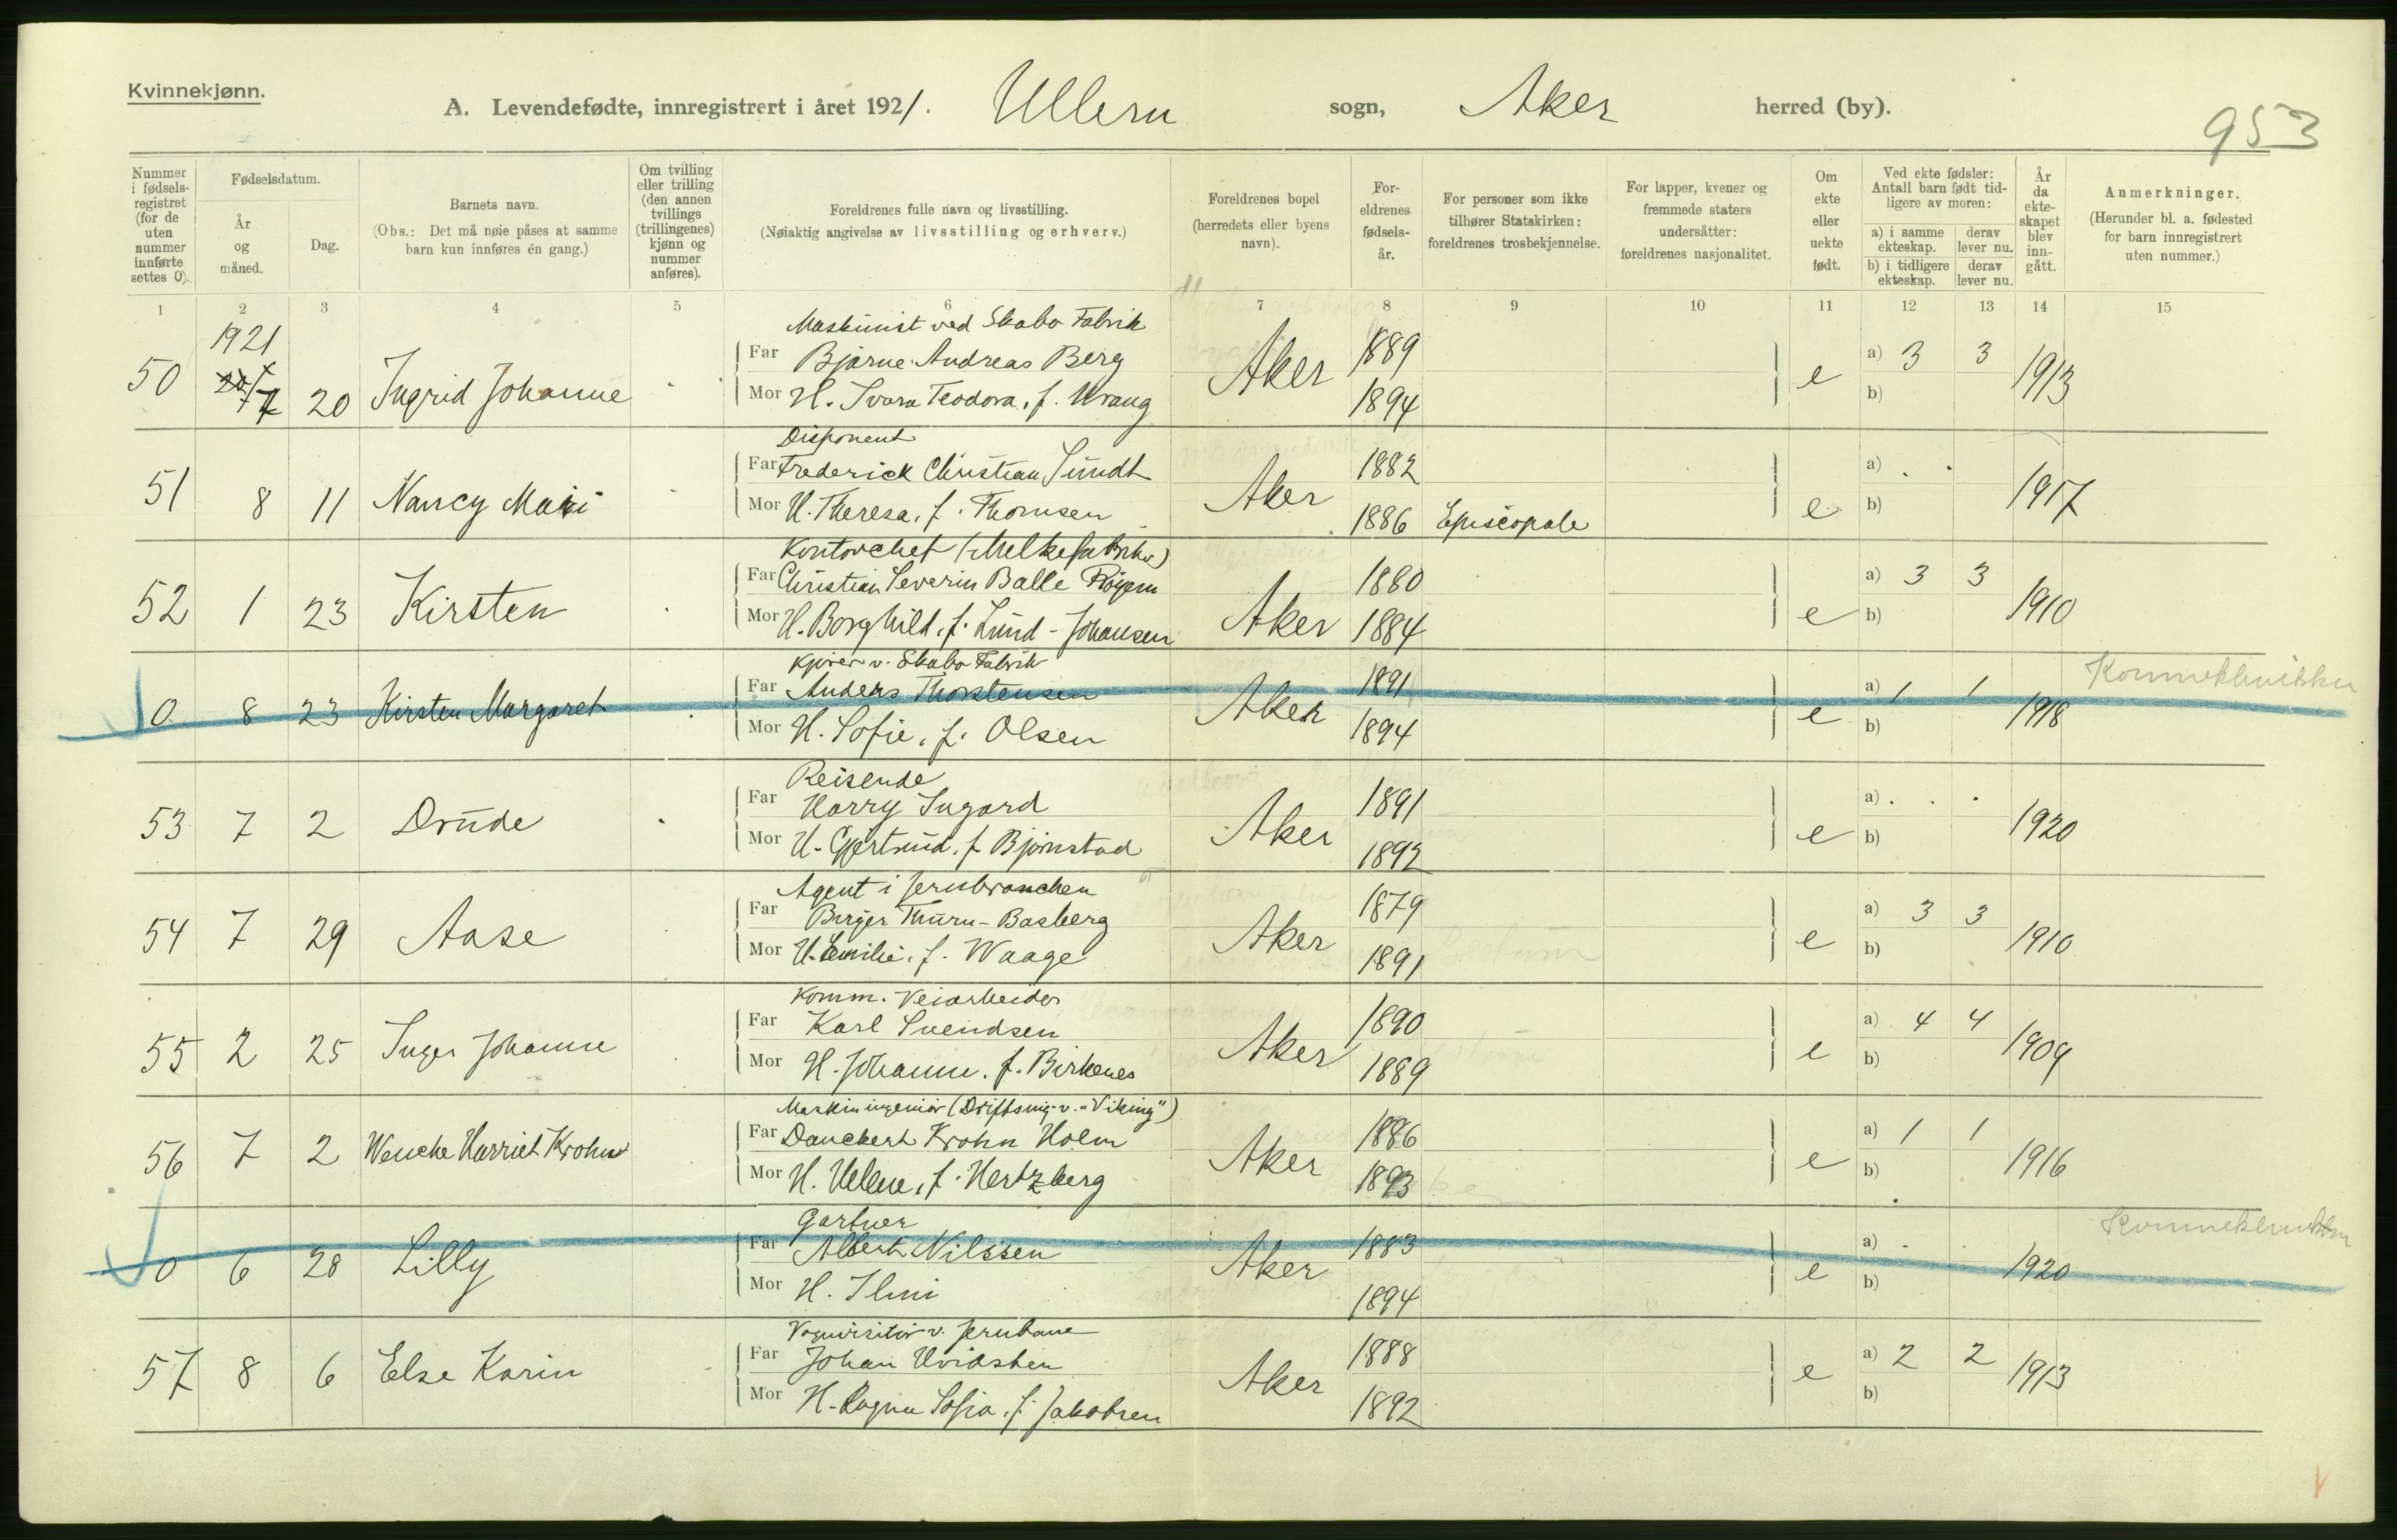 Kvinnekjønn.
A. Levendefødte, innregistrert i året 1921. Ullern sogn, Aker herred (by).
953
Nummer i fødselsregistret (for de uten nummer innførte settes 0).
Fødselsdatum.
År og måned.
Dag.
Barnets navn.
(Obs.: Det må nøie påses at samme barn kun innføres én gang.)
Om tvilling eller trilling (den annen tvillings (trillingenes) kjønn og nummer anføres).
Foreldrenes fulle navn og livsstilling.
(Nøiaktig angivelse av livsstilling og erhverv.)
Foreldrenes bopel (herredets eller byens navn).
Foreldrenes fødselsår.
For personer som ikke tilhører Statskirken: foreldrenes trosbekjennelse.
For lapper, kvener og fremmede staters undersåtter: foreldrenes nasjonalitet.
Om ekte eller uekte født.
Ved ekte fødsler: Antall barn født tidligere av moren:
a) i samme ekteskap. derav lever nu.
b) i tidligere ekteskap. derav lever nu.
År da ekteskapet blev inngått.
Anmerkninger.
(Herunder bl. a. fødested for barn innregistrert uten nummer.)
1 2 3 4 5 6 7 8 9 10 11 12 13 14 15
1921
Maskinist ved Skabo Fabrik
50 7 20 Ingrid Johanne Far Bjarne Andreas Berg Aker 1889 e a) 3 3 1913
Mor H. Svara Teodora, f. Wrang 1894 b)
Disponent
51 8 11 Nancy Mari Far Frederick Christian Sundt Aker 1882 e a) . . 1917
Mor H. Theresa, f. Thomsen 1886 Episcopale b)
Kontorchef (Melkefabrikk)
52 1 23 Kirsten Far Christian Severin Balle Röyem Aker 1880 e a) 3 3 1910
Mor H. Borghild, f. Lund-Johansen 1884 b)
Kjører v. Skabo Fabrik
0 8 23 Kirsten Margaret Far Anders Thorstensen Aker 1891 e a) 1 1 1918
Mor H. Sofie, f. Olsen 1894 b)
Reisende
53 7 2 Drude Far Harry Ingard Aker 1891 e a) . . . 1920
Mor H. Gjertrud, f. Bjørnstad 1892 b)
Agent i jernbranchen
54 7 29 Aase Far Birger Thurn-Basberg Aker 1879 e a) 3 3 1910
Mor H. Emilie, f. Waage 1891 b)
Komm. Veiarbeider
55 2 25 Inger Johanne Far Karl Svendsen Aker 1890 e a) 4 4 1909
Mor H. Johanne, f. Birkenes 1889 b)
Maskiningeniør (Driftsing. v. "Viking")
56 7 2 Wenche Harriet Krohn Far Danckert Krohn Holm Aker 1886 e a) 1 1 1916
Mor H. Helene, f. Hertzberg 1893 b)
Gartner
0 6 28 Lilly Far Albert Nilssen Aker 1883 e a) . . 1920
Mor H. Ilmi 1894 b)
v. Jernbane
57 8 6 Else Karin Far Johan Hvidsten Aker 1888 e a) 2 2 1913
Mor H. Ragna Sofia, f. Jakobsen 1892 b)